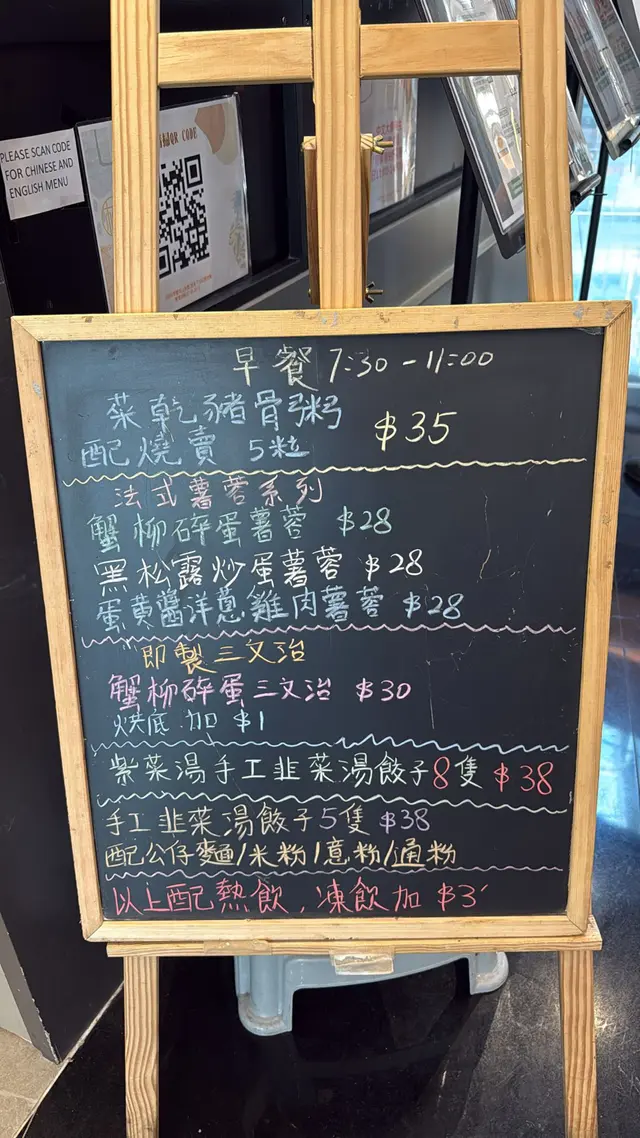 PLEASE SCAN CODE
FOR CHINESE AND
ENGLISH MENU
CODE
早餐 7:30 - 11:00
菜乾豬骨粥
配燒賣 5粒 $35
法式薯蓉系列
蟹柳碎蛋薯蓉 $28
黑松露炒蛋薯蓉 $28
蛋黄醬洋蔥雞肉薯蓉 $28
即製三文治
蟹柳碎蛋三文治 $30
烘底加 $1
紫菜湯手工韮菜湯餃子8隻 $38
手工韮菜湯餃子5隻 $38
配公仔麵/米粉/意粉/通粉
以上配熱飲,凍飲加 $3